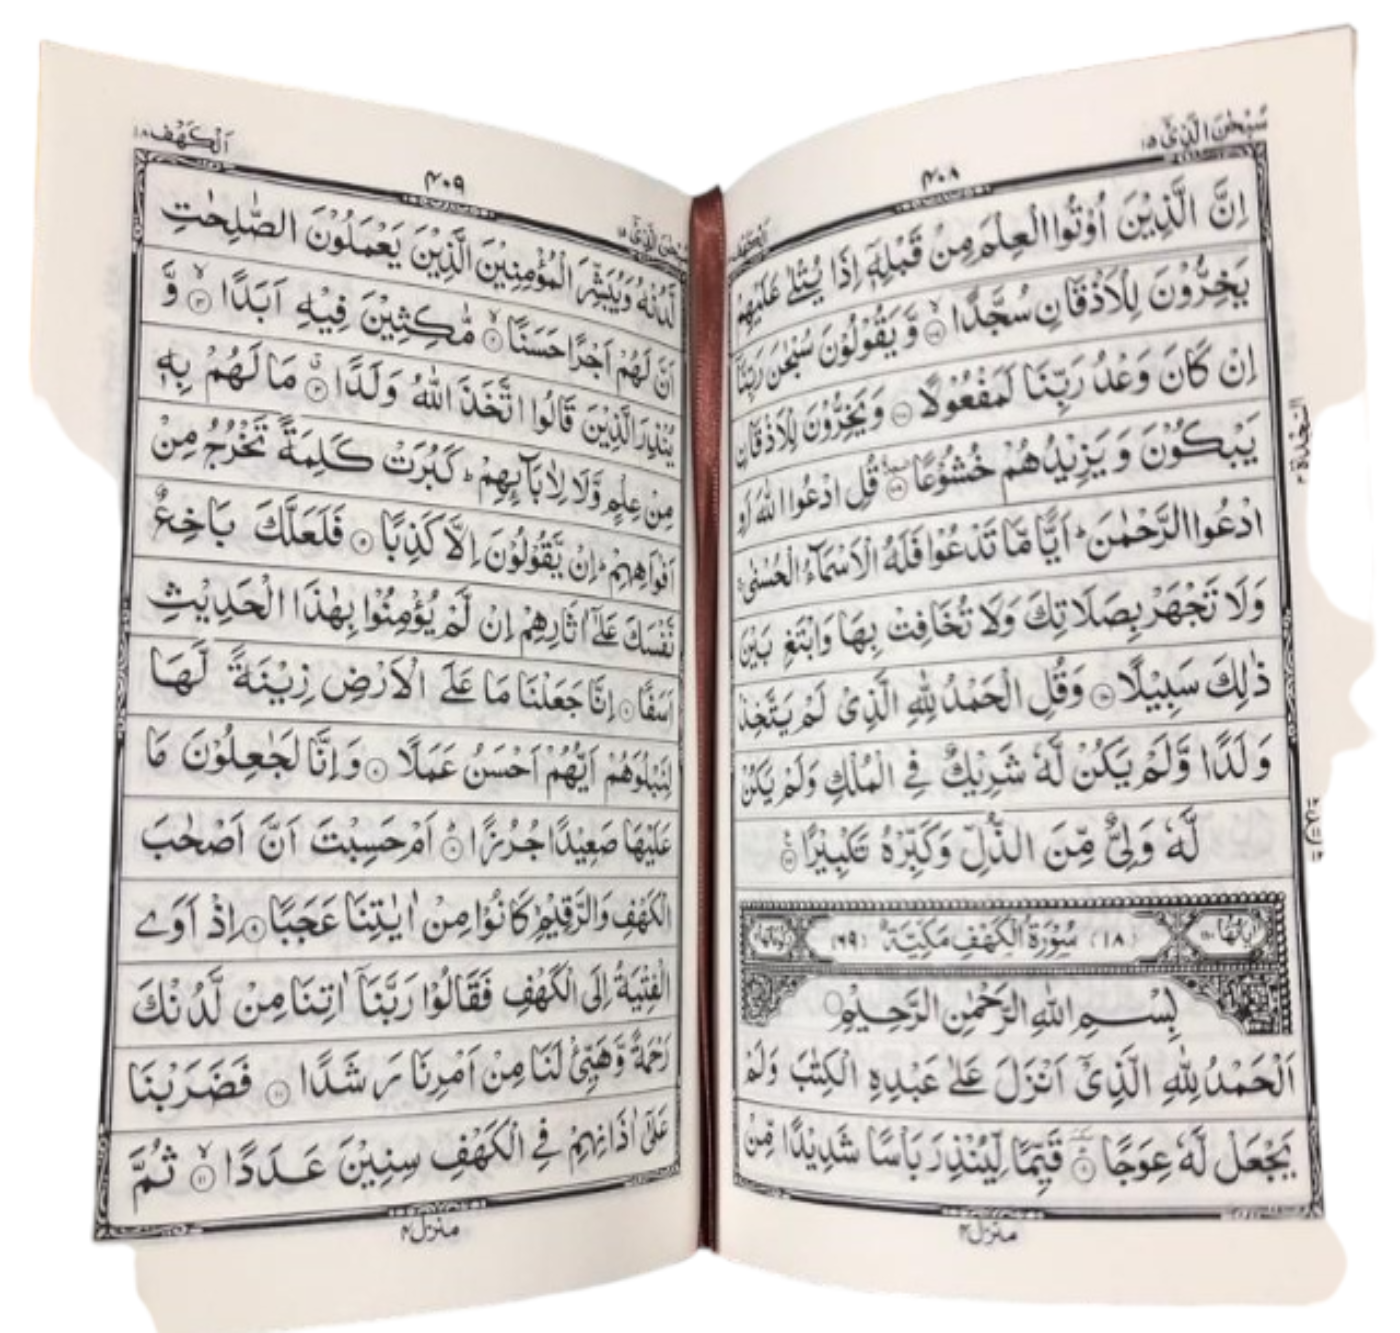 سُبْحٰنَ الَّذِیْۤ ١٥
٤٠٨
اَلْكَهْف
اِنَّ الَّذِيْنَ اُوْتُوا الْعِلْمَ مِنْ قَبْلِهٖٓ اِذَا يُتْلٰى عَلَيْهِمْ
يَخِرُّوْنَ لِلْاَذْقَانِ سُجَّدًا ۙ‏﴿١٠٧﴾ وَّ يَقُوْلُوْنَ سُبْحٰنَ رَبِّنَآ
اِنْ كَانَ وَعْدُ رَبِّنَا لَمَفْعُوْلًا ﴿١٠٨﴾ وَيَخِرُّوْنَ لِلْاَذْقَانِ
يَبْكُوْنَ وَ يَزِيْدُهُمْ خُشُوْعًا ﴿١٠٩﴾ قُلِ ادْعُوا اللّٰهَ اَوِ
ادْعُوا الرَّحْمٰنَ ؕ اَيًّا مَّا تَدْعُوْا فَلَهُ الْاَسْمَآءُ الْحُسْنٰى ۚ
وَلَا تَجْهَرْ بِصَلَاتِكَ وَلَا تُخَافِتْ بِهَا وَابْتَغِ بَيْنَ
ذٰلِكَ سَبِيْلًا ﴿١١٠﴾ وَقُلِ الْحَمْدُ لِلّٰهِ الَّذِىْ لَمْ يَتَّخِذْ
وَلَدًا وَّلَمْ يَكُنْ لَّهٗ شَرِيْكٌ فِى الْمُلْكِ وَلَمْ يَكُنْ
لَّهٗ وَلِىٌّ مِّنَ الذُّلِّ وَكَبِّرْهُ تَكْبِيْرًا ﴿١١١﴾
اٰيَاتُهَا ١١٠ (١٨) سُوْرَةُ الْكَهْفِ مَكِّيَّةٌ (٦٩) رُكُوْعَاتُهَا
بِسْمِ اللّٰهِ الرَّحْمٰنِ الرَّحِيْمِ
اَلْحَمْدُ لِلّٰهِ الَّذِىْٓ اَنْزَلَ عَلٰى عَبْدِهِ الْكِتٰبَ وَلَمْ
يَجْعَلْ لَّهٗ عِوَجًا ﴿١﴾ قَيِّمًا لِّيُنْذِرَ بَاْسًا شَدِيْدًا مِّنْ
منزل ٤
اَلْكَهْف ١٨
٤٠٩
لَّدُنْهُ وَيُبَشِّرَ الْمُؤْمِنِيْنَ الَّذِيْنَ يَعْمَلُوْنَ الصّٰلِحٰتِ
اَنَّ لَهُمْ اَجْرًا حَسَنًا ۙ‏﴿٢﴾ مّٰكِثِيْنَ فِيْهِ اَبَدًا ۙ‏﴿٣﴾ وَّ
يُنْذِرَ الَّذِيْنَ قَالُوا اتَّخَذَ اللّٰهُ وَلَدًا ﴿٤﴾ مَا لَهُمْ بِهٖ
مِنْ عِلْمٍ وَّلَا لِاٰبَآئِهِمْ ؕ كَبُرَتْ كَلِمَةً تَخْرُجُ مِنْ
اَفْوَاهِهِمْ ؕ اِنْ يَّقُوْلُوْنَ اِلَّا كَذِبًا ﴿٥﴾ فَلَعَلَّكَ بَاخِعٌ
نَّفْسَكَ عَلٰٓى اٰثَارِهِمْ اِنْ لَّمْ يُؤْمِنُوْا بِهٰذَا الْحَدِيْثِ
اَسَفًا ﴿٦﴾ اِنَّا جَعَلْنَا مَا عَلَى الْاَرْضِ زِيْنَةً لَّهَا
لِنَبْلُوَهُمْ اَيُّهُمْ اَحْسَنُ عَمَلًا ﴿٧﴾ وَاِنَّا لَجٰعِلُوْنَ مَا
عَلَيْهَا صَعِيْدًا جُرُزًا ﴿٨﴾ اَمْ حَسِبْتَ اَنَّ اَصْحٰبَ
الْكَهْفِ وَالرَّقِيْمِ كَانُوْا مِنْ اٰيٰتِنَا عَجَبًا ﴿٩﴾ اِذْ اَوَى
الْفِتْيَةُ اِلَى الْكَهْفِ فَقَالُوْا رَبَّنَآ اٰتِنَا مِنْ لَّدُنْكَ
رَحْمَةً وَّهَيِّئْ لَنَا مِنْ اَمْرِنَا رَشَدًا ﴿١٠﴾ فَضَرَبْنَا
عَلٰٓى اٰذَانِهِمْ فِى الْكَهْفِ سِنِيْنَ عَدَدًا ۙ‏﴿١١﴾ ثُمَّ
منزل ٤